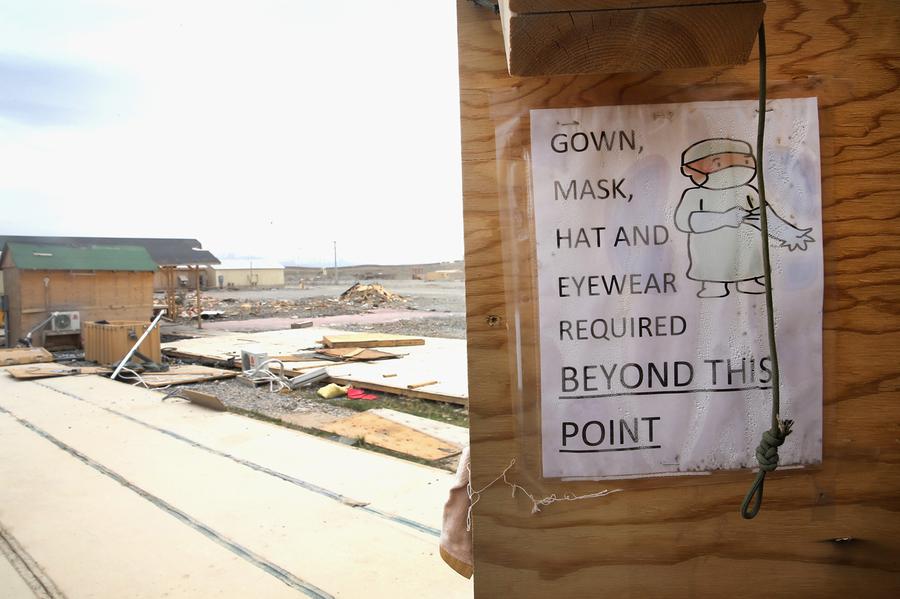 GOWN,
MASK,
HAT AND
EYEWEAR
REQUIRED
BEYOND THIS
POINT